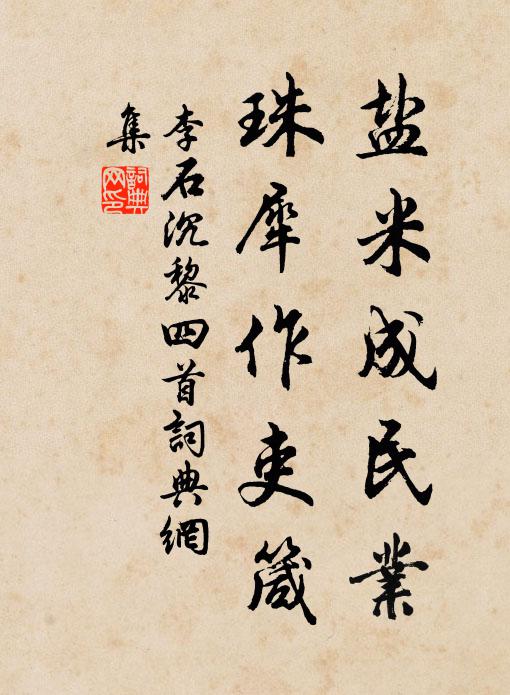 盐米成民業
珠犀作吏箴
李石沉黎四首詞典網
集
詞典
网印